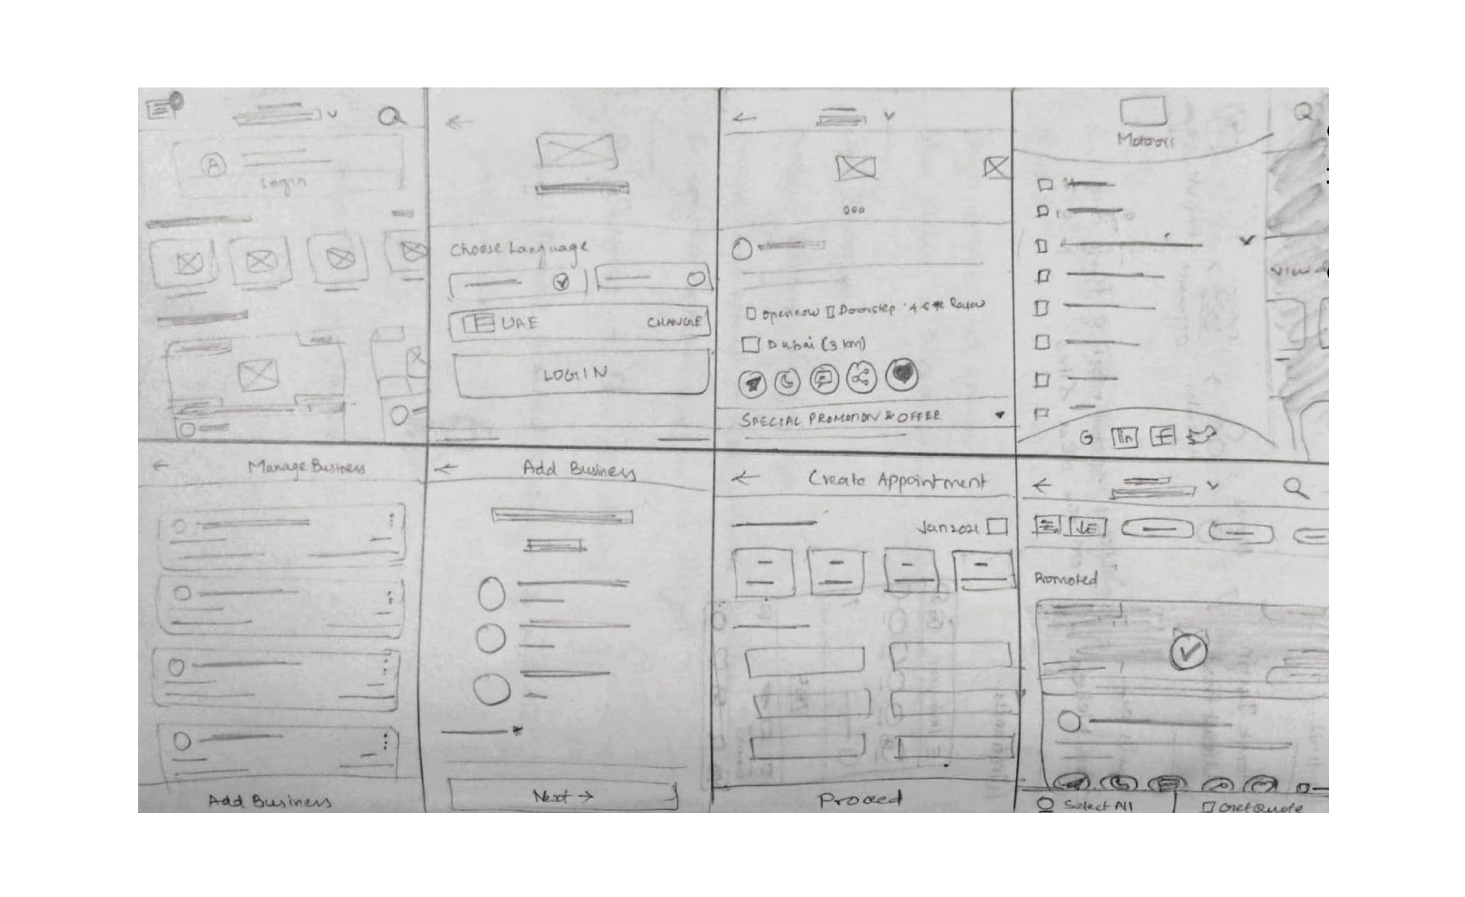 Login
Choose Language
UAE CHANGE
LOGIN
open now Doorstep 4.5
Dubai (3 km)
SPECIAL PROMOTION & OFFER
View
G in f
Manage Business
Add Business
Add Business
Next →
Create Appointment
Jan 2021
Proceed
Promoted
Select All Get Quote